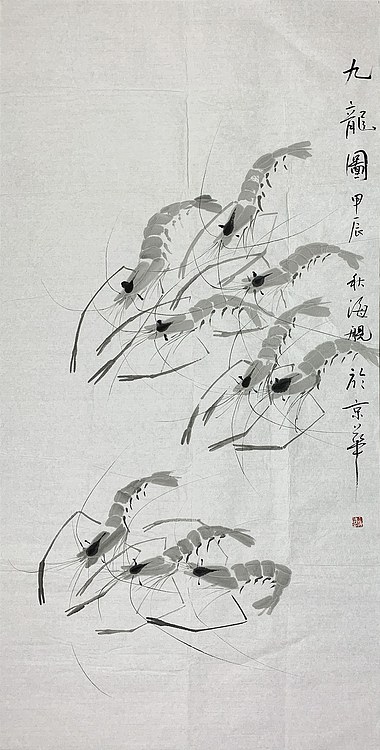 九龍圖 甲辰秋海舰於京華